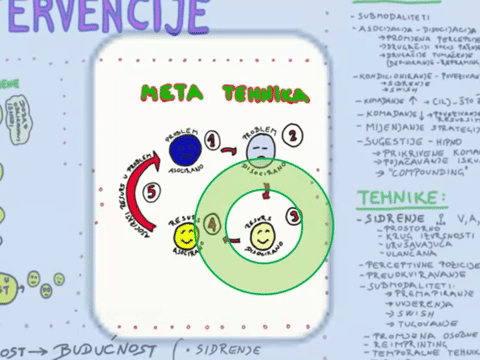 TERVENCIJE
META TEHNIKA
PROBLEM
ASOCIRANO
1
PROBLEM
DISOCIRANO
2
RESURS
DISOCIRANO
3
RESURS
4
5
ASOCIRATI RESURS U PROBLEM
BUDUĆNOST
- SIDRENJE
- SUBMODALITETI
- ASOCIJACIJA - DISOCIJACIJA
→ PROMJENA PERCEPCIJE
- KONDICIONIRANJE - POVEZIVANJE
→ SIDRENJE
→ SWISH
- KOMADANJE ↑ → (CIL) - ŠTO
- KOMADANJE ↓
- MIJENJANJE STRATEGIJ
- SUGESTIJE - HIPNO
→ PRIKRIVENE KOMA
→ POJAČAVANJE ISKU
→ "COMPOUNDING"
TEHNIKE:
- SIDRENJE ⚓ V, A,
- PROSTORNO
- KRUG IZVRSNOSTI
- URUŠAVAJUĆA
- ULANČANA
- PERCEPTIVNE POZICIJE
- PREUOKVIRAVANJE
- SUBMODALITETI:
→ PREMAPIRANJE
→ UVJERENJA
→ SWISH
→ TUGOVANJE
- PROMJENA OSOBNE
- REIMPRINTING
- TEMPORALNE TEHNI